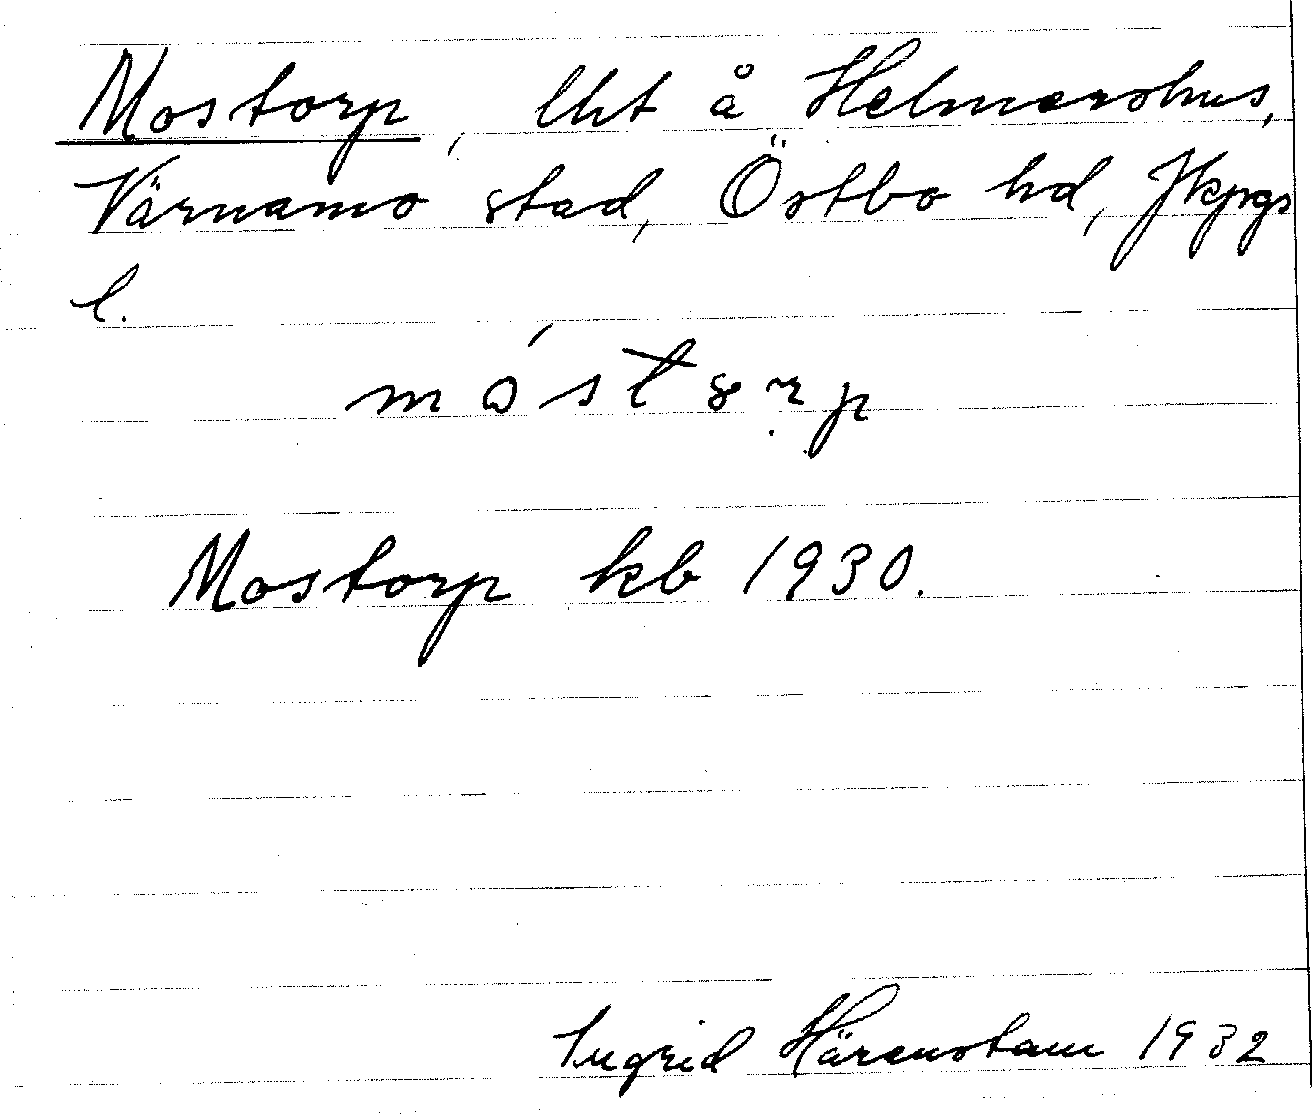 Mostorp, lht å Helmershus,
Värnamo stad, Östbo hd, Jkpgs
l.
Mostorp kb 1930.
Ingrid Härenstam 1932